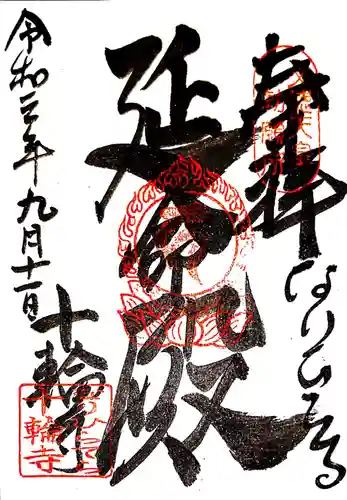 奉拝
なりひら
延命殿
十輪寺
令和三年九月十一日
十輪寺